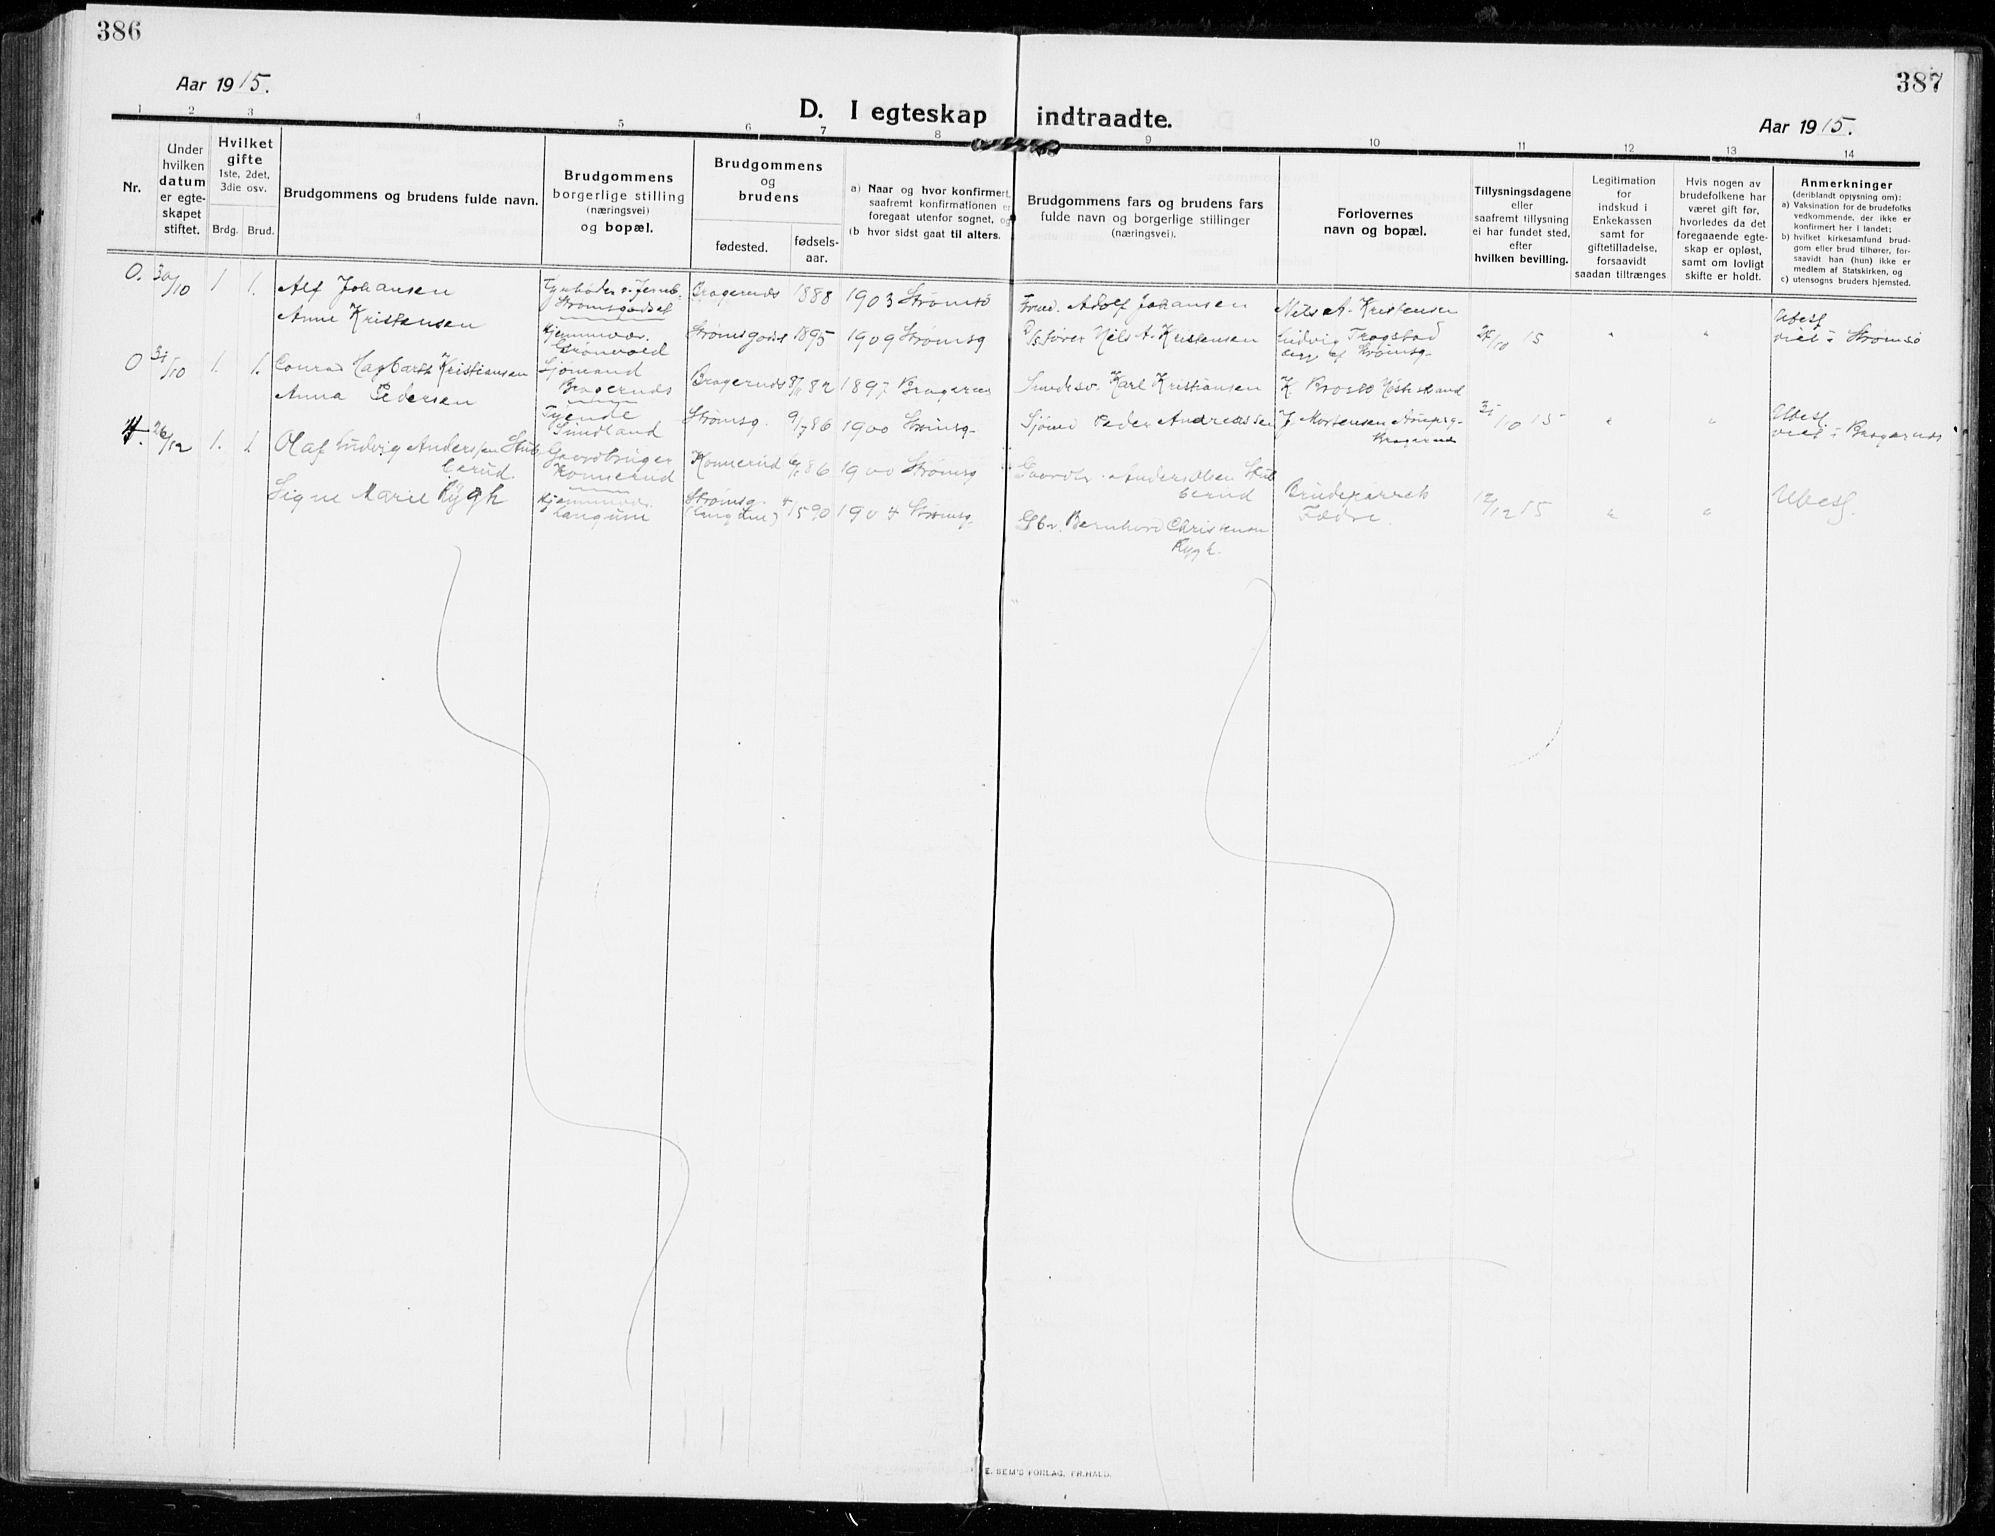 386
387
Aar 1915.
Aar 1915.
D. I egteskap indtraadte.
1 2 3 4 5 6 7 8 9 10 11 12 13 14
Nr.
Under
hvilken
datum
er egte-
skapet
stiftet.
Hvilket
gifte
1ste, 2det,
3die osv.
Brdg. Brud.
Brudgommens og brudens fulde navn.
Brudgommens
borgerlige stilling
(næringsvei)
og bopæl.
Brudgommens
og
brudens
fødested.
fødsels-
aar.
a) Naar og hvor konfirmert,
saafremt konfirmationen er
foregaat utenfor sognet, og
(b hvor sidst gaat til alters.
Brudgommens fars og brudens fars
fulde navn og borgerlige stillinger
(næringsvei).
Forlovernes
navn og bopæl.
Tillysningsdagene
eller
saafremt tillysning
ei har fundet sted,
efter
hvilken bevilling.
Legitimation
for
indskud i
Enkekassen
samt for
giftetilladelse,
forsaavidt
saadan tiltrænges
Hvis nogen av
brudefolkene har
været gift før,
hvorledes da det
foregaaende egte-
skap er opløst,
samt om lovligt
skifte er holdt.
Anmerkninger
(deriblandt opjysning om):
a) Vaksination for de brudefolks
vedkommende, der ikke er
konfirmert her i landet;
b) hvilket kirkesamfund brud-
gom eller brud tilhører, for-
saavidt han (hun) ikke er
medlem af Statskirken, og
c) utensogns bruders hjemsted.
0. 30/10 1. 1. Alf Johansen
Strømsgodset
Bragernes 1888 1903 Strømsø
Adolf Johansen
Nils A. Kristensen
Anne Kristensen
Strømsgodset 1895 1909 Strømsg
Nils A. Kristensen
Ludvig Trogstad
15 " "
Ubesl.
viet i Strømsø
0 31/10 1. 1. Conrad Hagbarth Kristiansen
Sjømand
Bragernes
Bragernes 82 1897 Bragernes
Karl Kristiansen
Anna Pedersen
Tjende
Sundland
Strømsg. 9/7 86 1900 Strømsg.
Sjømd Peder Andreassen
J. Mortensen
Bragernes
31/10 15 " "
Ubesl.
viet i Bragernes
26/12 1. 1. Olaf Ludvig Anderssen Stub
berud
Gaardbruger
Konnerud
Konnerud 86 1900 Strømsg
Gaardbr. Anders Olsen Stub
berud
Signe Marie Rygh
Strømsg. 1904 Strømsg.
Gbr. Bernhard Christensen
Rygh.
Brudeparrets
Fædre.
12/12 15 " "
Ubesl.
E. SEM'S FORLAG, FR.HALD.